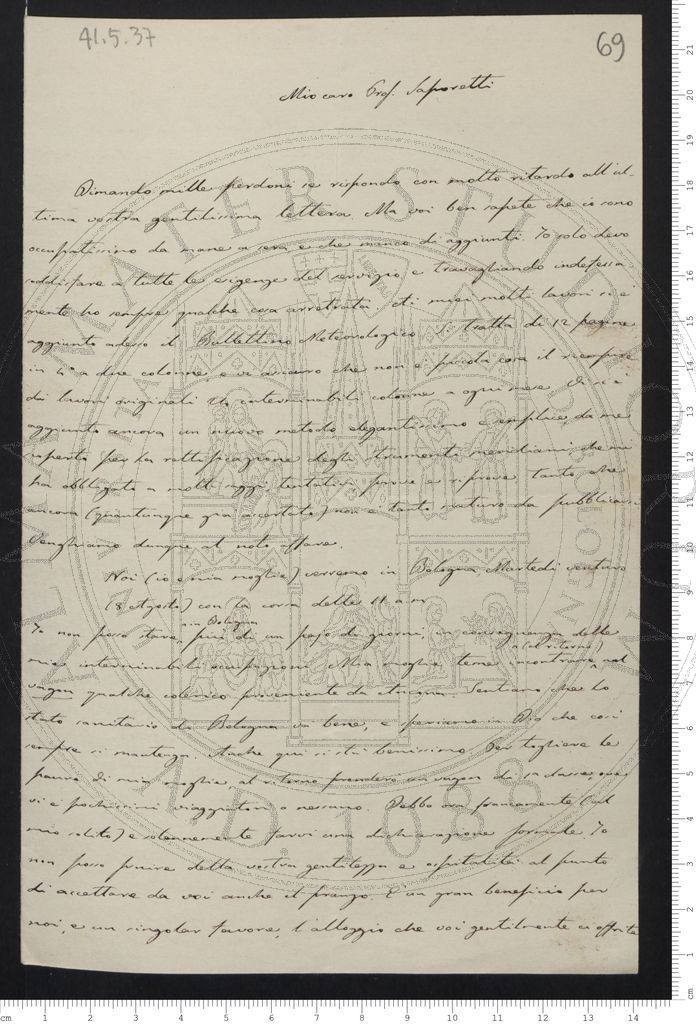 41.5.37
69
Mio caro Prof. Saporetti
Dimando mille perdoni se rispondo con molto ritardo all'ul-
tima vostra gentilissima lettera. Ma voi ben sapete che io sono
occupatissimo da mane a sera e che manco di aggiunti. Io solo devo
soddisfare a tutte le esigenze del servizio, e travagliando indefessa-
mente ho sempre qualche cosa arretrata. Ai miei molti lavori si è
aggiunto adesso il Bullettino Meteorologico. Si tratta di 12 pagine
in 4° a due colonne, e vi assicuro che non è piccola cosa il riempire
di lavori originali 24 interminabili colonne a ogni mese. Vi si è
aggiunto ancora un nuovo metodo elegantissimo e semplice, da me
scoperto per la rettificazione degli strumenti meridiani, che mi
ha obbligato a molti saggi, tentativi, prove e riprove, tanto che
ancora (quantunque già accertato) non è tanto maturo da pubblicarsi
Venghiamo dunque al noto affare.
Noi (io e mia moglie) verremo in Bologna Martedì venturo
(8 Agosto) con la corsa delle 11 a.m.
Io non posso stare in Bologna più di un pajo di giorni, in conseguenza delle
mie interminabili occupazioni. Mia moglie, teme incontrare (al ritorno) nel
vagon qualche colerico proveniente da Ancona. Sentiamo che lo
stato sanitario di Bologna va bene, e speriamo in Dio che così
sempre si mantenga. Anche qui si sta benissimo. Per togliere la
paura di mia moglie, al ritorno prenderò un vagon di 1a classe, ove
vi è pochissimi viaggiatori o nessuno. Debbo ora francamente (al
mio solito) e solennemente farvi una dichiarazione formale. Io
non posso fruire della vostra gentilezza e ospitalità al punto
di accettare da voi anche il pranzo. È un gran beneficio per
noi, e un singolar favore, l'alloggio che voi gentilmente ci offrite
ALMA MATER STUDIORUM
A.D. 1088
cm 1 2 3 4 5 6 7 8 9 10 11 12 13 14
cm 1 2 3 4 5 6 7 8 9 10 11 12 13 14 15 16 17 18 19 20 21